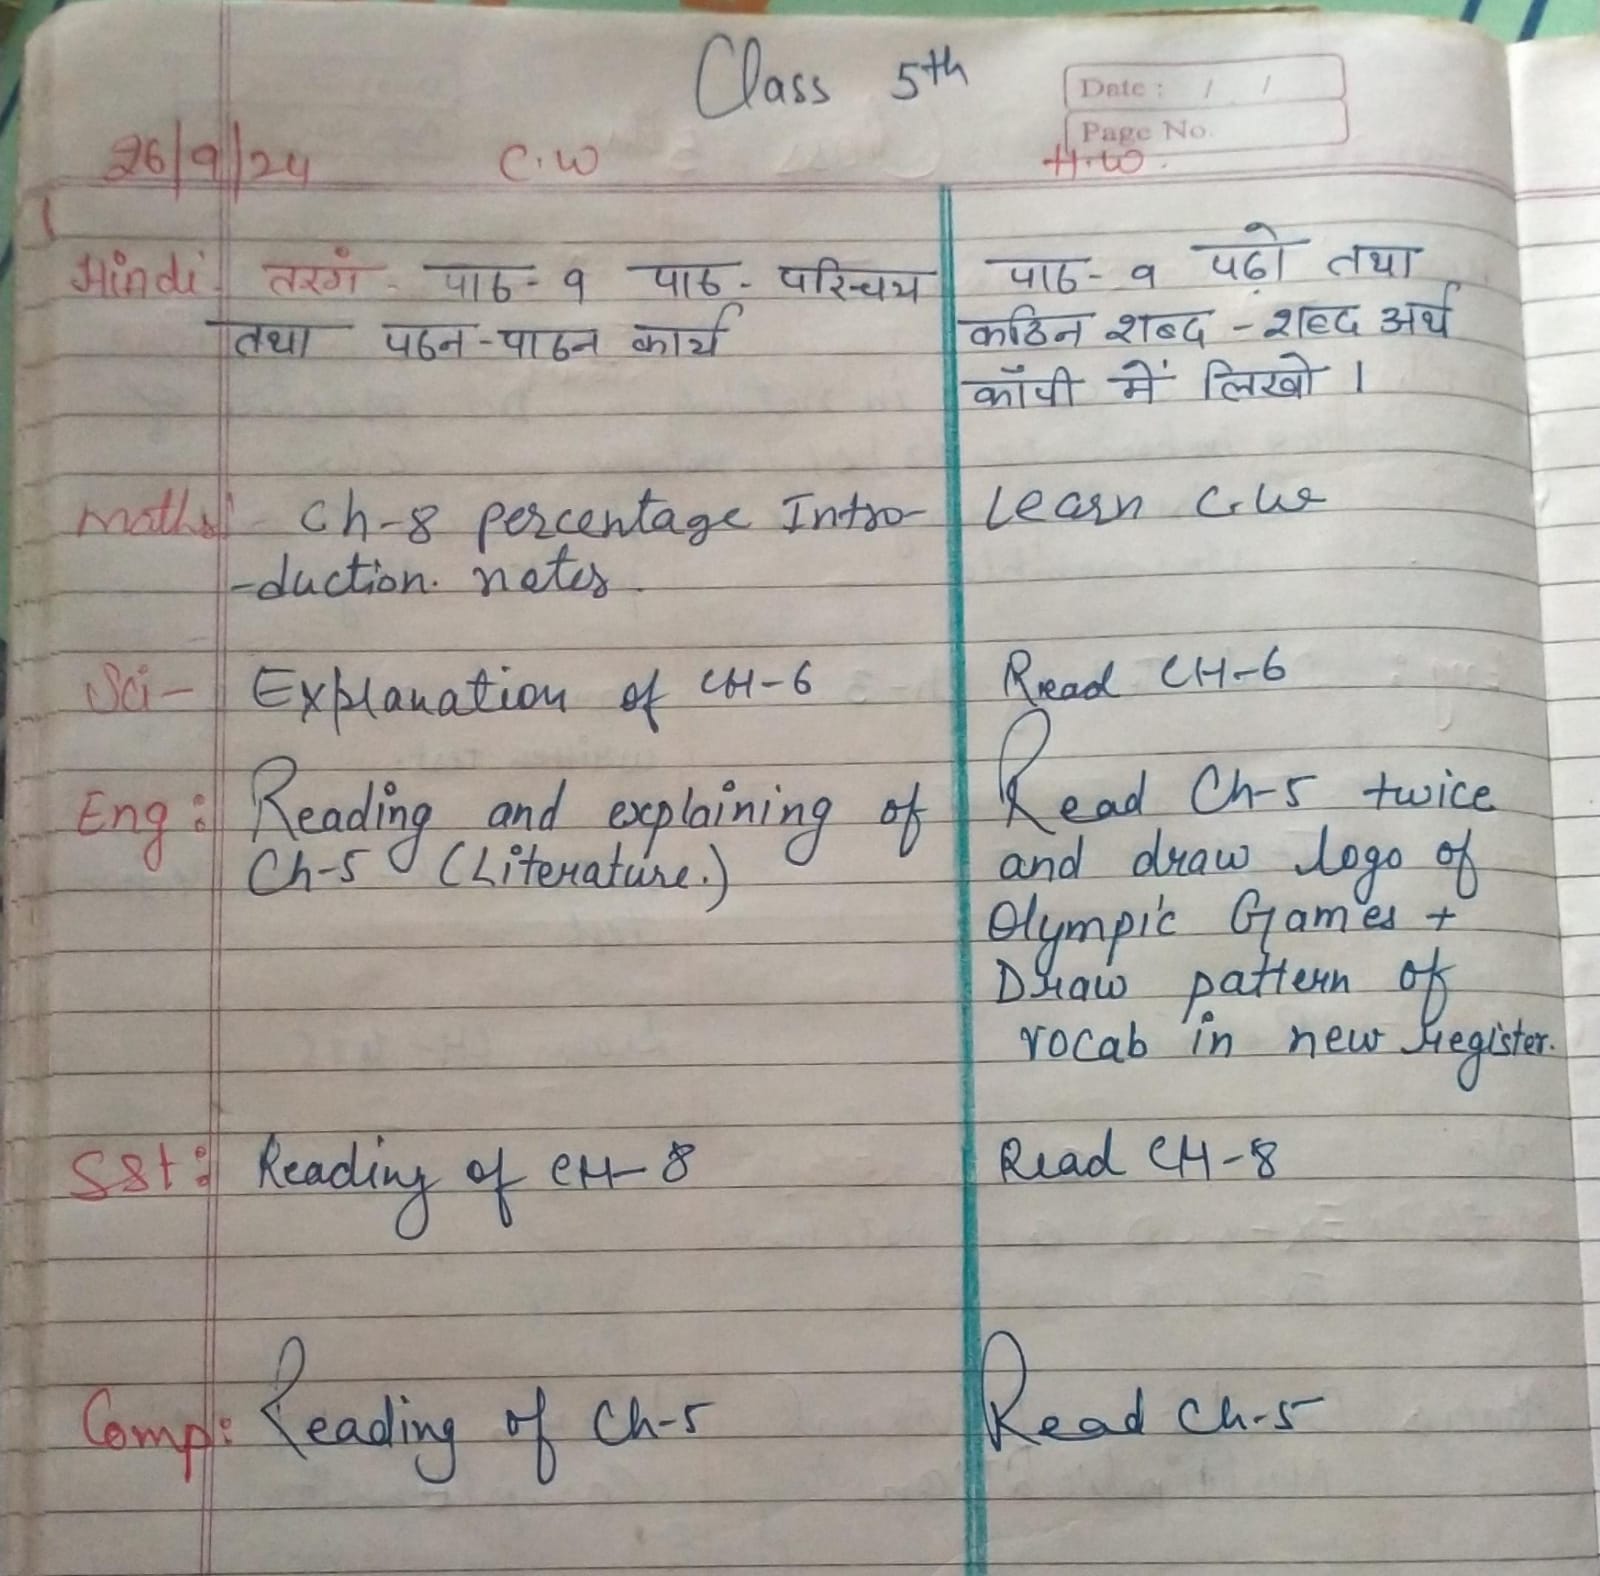 Class 5th
Date : / /
Page No.
26/9/24 C.W H.W.
Hindi - तरगं - पाठ - १ पाठ - परिचय
तथा पठन - पाठन कार्य
पाठ - १ पढ़ो तथा
कठिन शब्द - शब्द अर्थ
कॉपी में लिखो ।
Maths - Ch-8 percentage Intro-
-duction. notes.
Learn C.W
Sci - Explanation of CH-6
Read CH-6
Eng : Reading and explaining of
Ch-5 (Literature.)
Read Ch-5 twice
and draw logo of
Olympic Games +
Draw pattern of
vocab in new register.
SSt : Reading of CH-8
Read CH-8
Comp : Reading of Ch-5
Read Ch-5